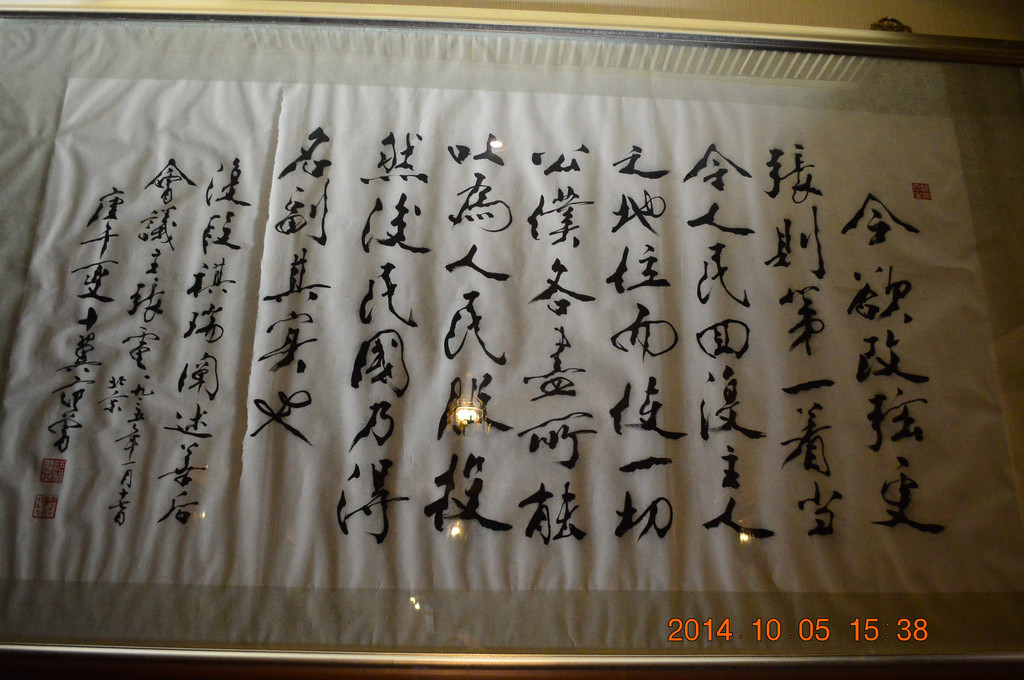 今欲改弦更
張則第一着当
令人民回復主人
之地位而使一切
公僕各盡所能
以為人民服役
然後民國乃得
名副其實也
復段祺瑞闡述善后
會議主張電 一九二五年一月十七日
北京
庚午夏十翼范曾
2014.10.05 15:38